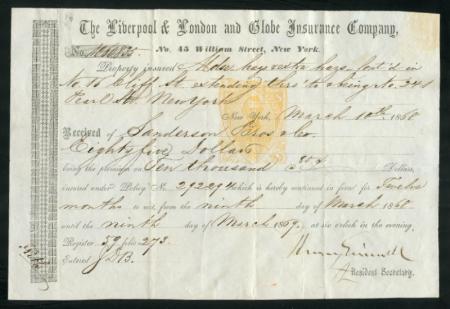 The Liverpool & London and Globe Insurance Company,
No. No. 45 William Street, New York.
Property insured
to 15 Cliff St. extending thro' to & being No. 341
Pearl St. New York
New York, March 10th. 1868
Received of Sanderson Bros & Co.
Eighty five Dollars
being the premium on Ten thousand Dollars,
insured under Policy No. which is hereby continued in force for Twelve
months to wit, from the ninth day of March 1868
until the ninth day of March 1869, at six o'clock in the evening.
Register 39 folio 273.
Entered
Resident Secretary.